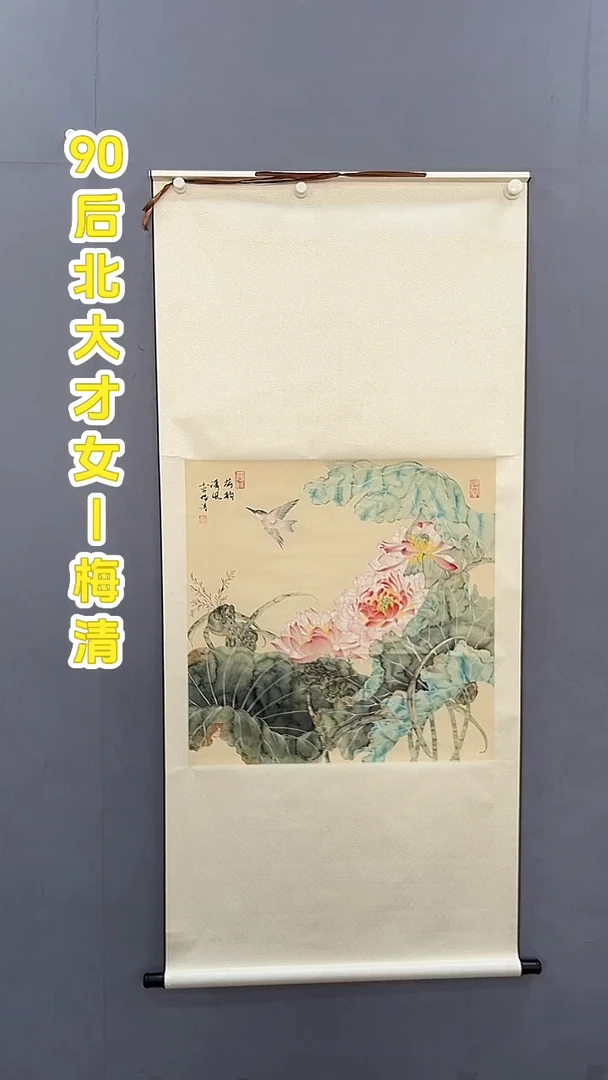 90后北大才女-梅清
荷韵
清风